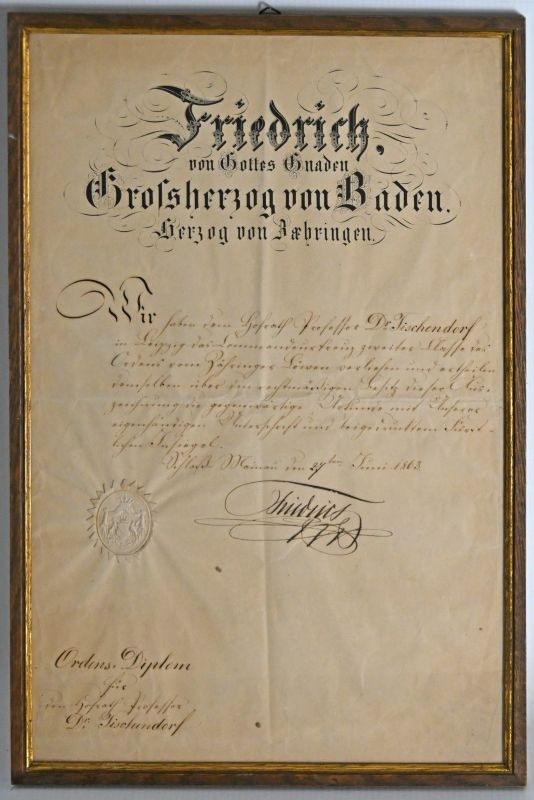 Friedrich,
von Gottes Gnaden
Grossherzog von Baden.
Herzog von Zæhringen.
Wir haben dem Hofrath Professor Dr. Tischendorf
in Leipzig das Commandeurkreuz zweiter Klasse des
Ordens vom Zähringer Löwen verliehen und ertheilen
demselben über den rechtmäßigen Besitz dieser Aus-
zeichnung die gegenwärtige Urkunde mit Unserer
eigenhändigen Unterschrift und beigedrucktem Fürst-
lichen Insiegel.
Schloß Mainau den 27ten Juni 1863.
Friedrich
Ordens-Diplom
für
den Hofrath Professor
Dr. Tischendorf